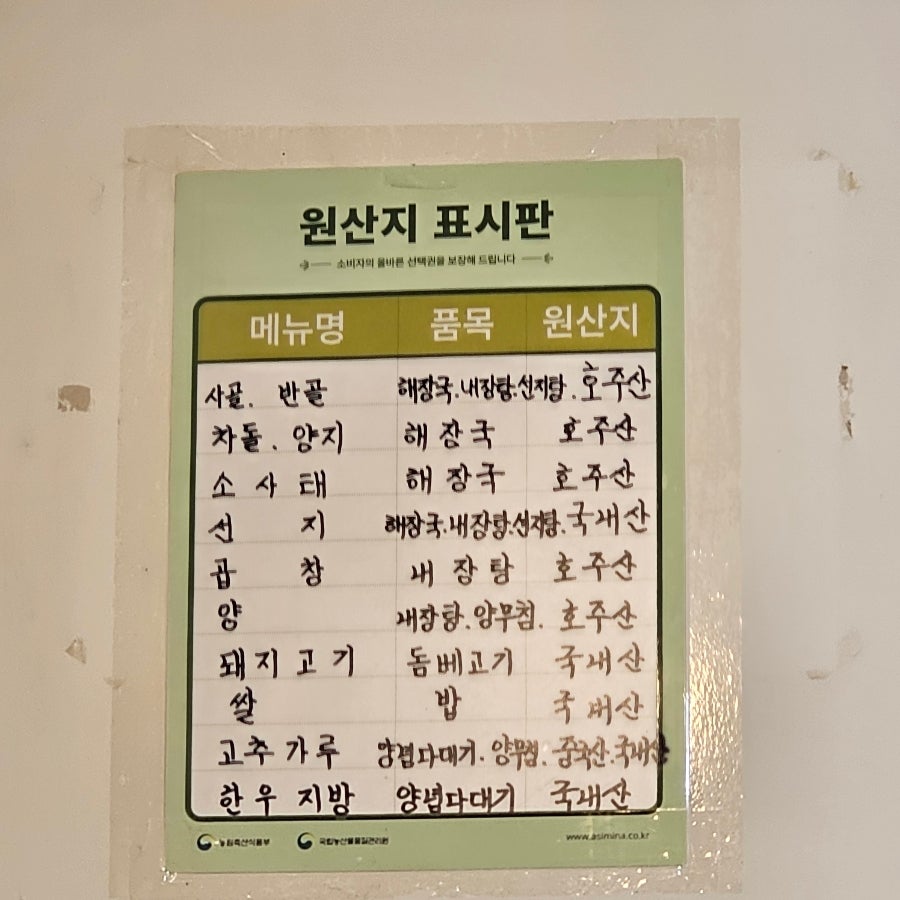 원산지 표시판
소비자의 올바른 선택권을 보장해 드립니다
메뉴명 품목 원산지
사골. 반골 해장국.내장탕.선지탕. 호주산
차돌. 양지 해장국 호주산
소사태 해장국 호주산
선지 해장국.내장탕.선지탕. 국내산
곱창 내장탕 호주산
양 내장탕.양무침. 호주산
돼지고기 돔베고기 국내산
쌀 밥 국내산
고추가루 양념다대기. 양무침. 중국산.국내산
한우지방 양념다대기 국내산
농림축산식품부 국립농산물품질관리원 www.asimina.co.kr